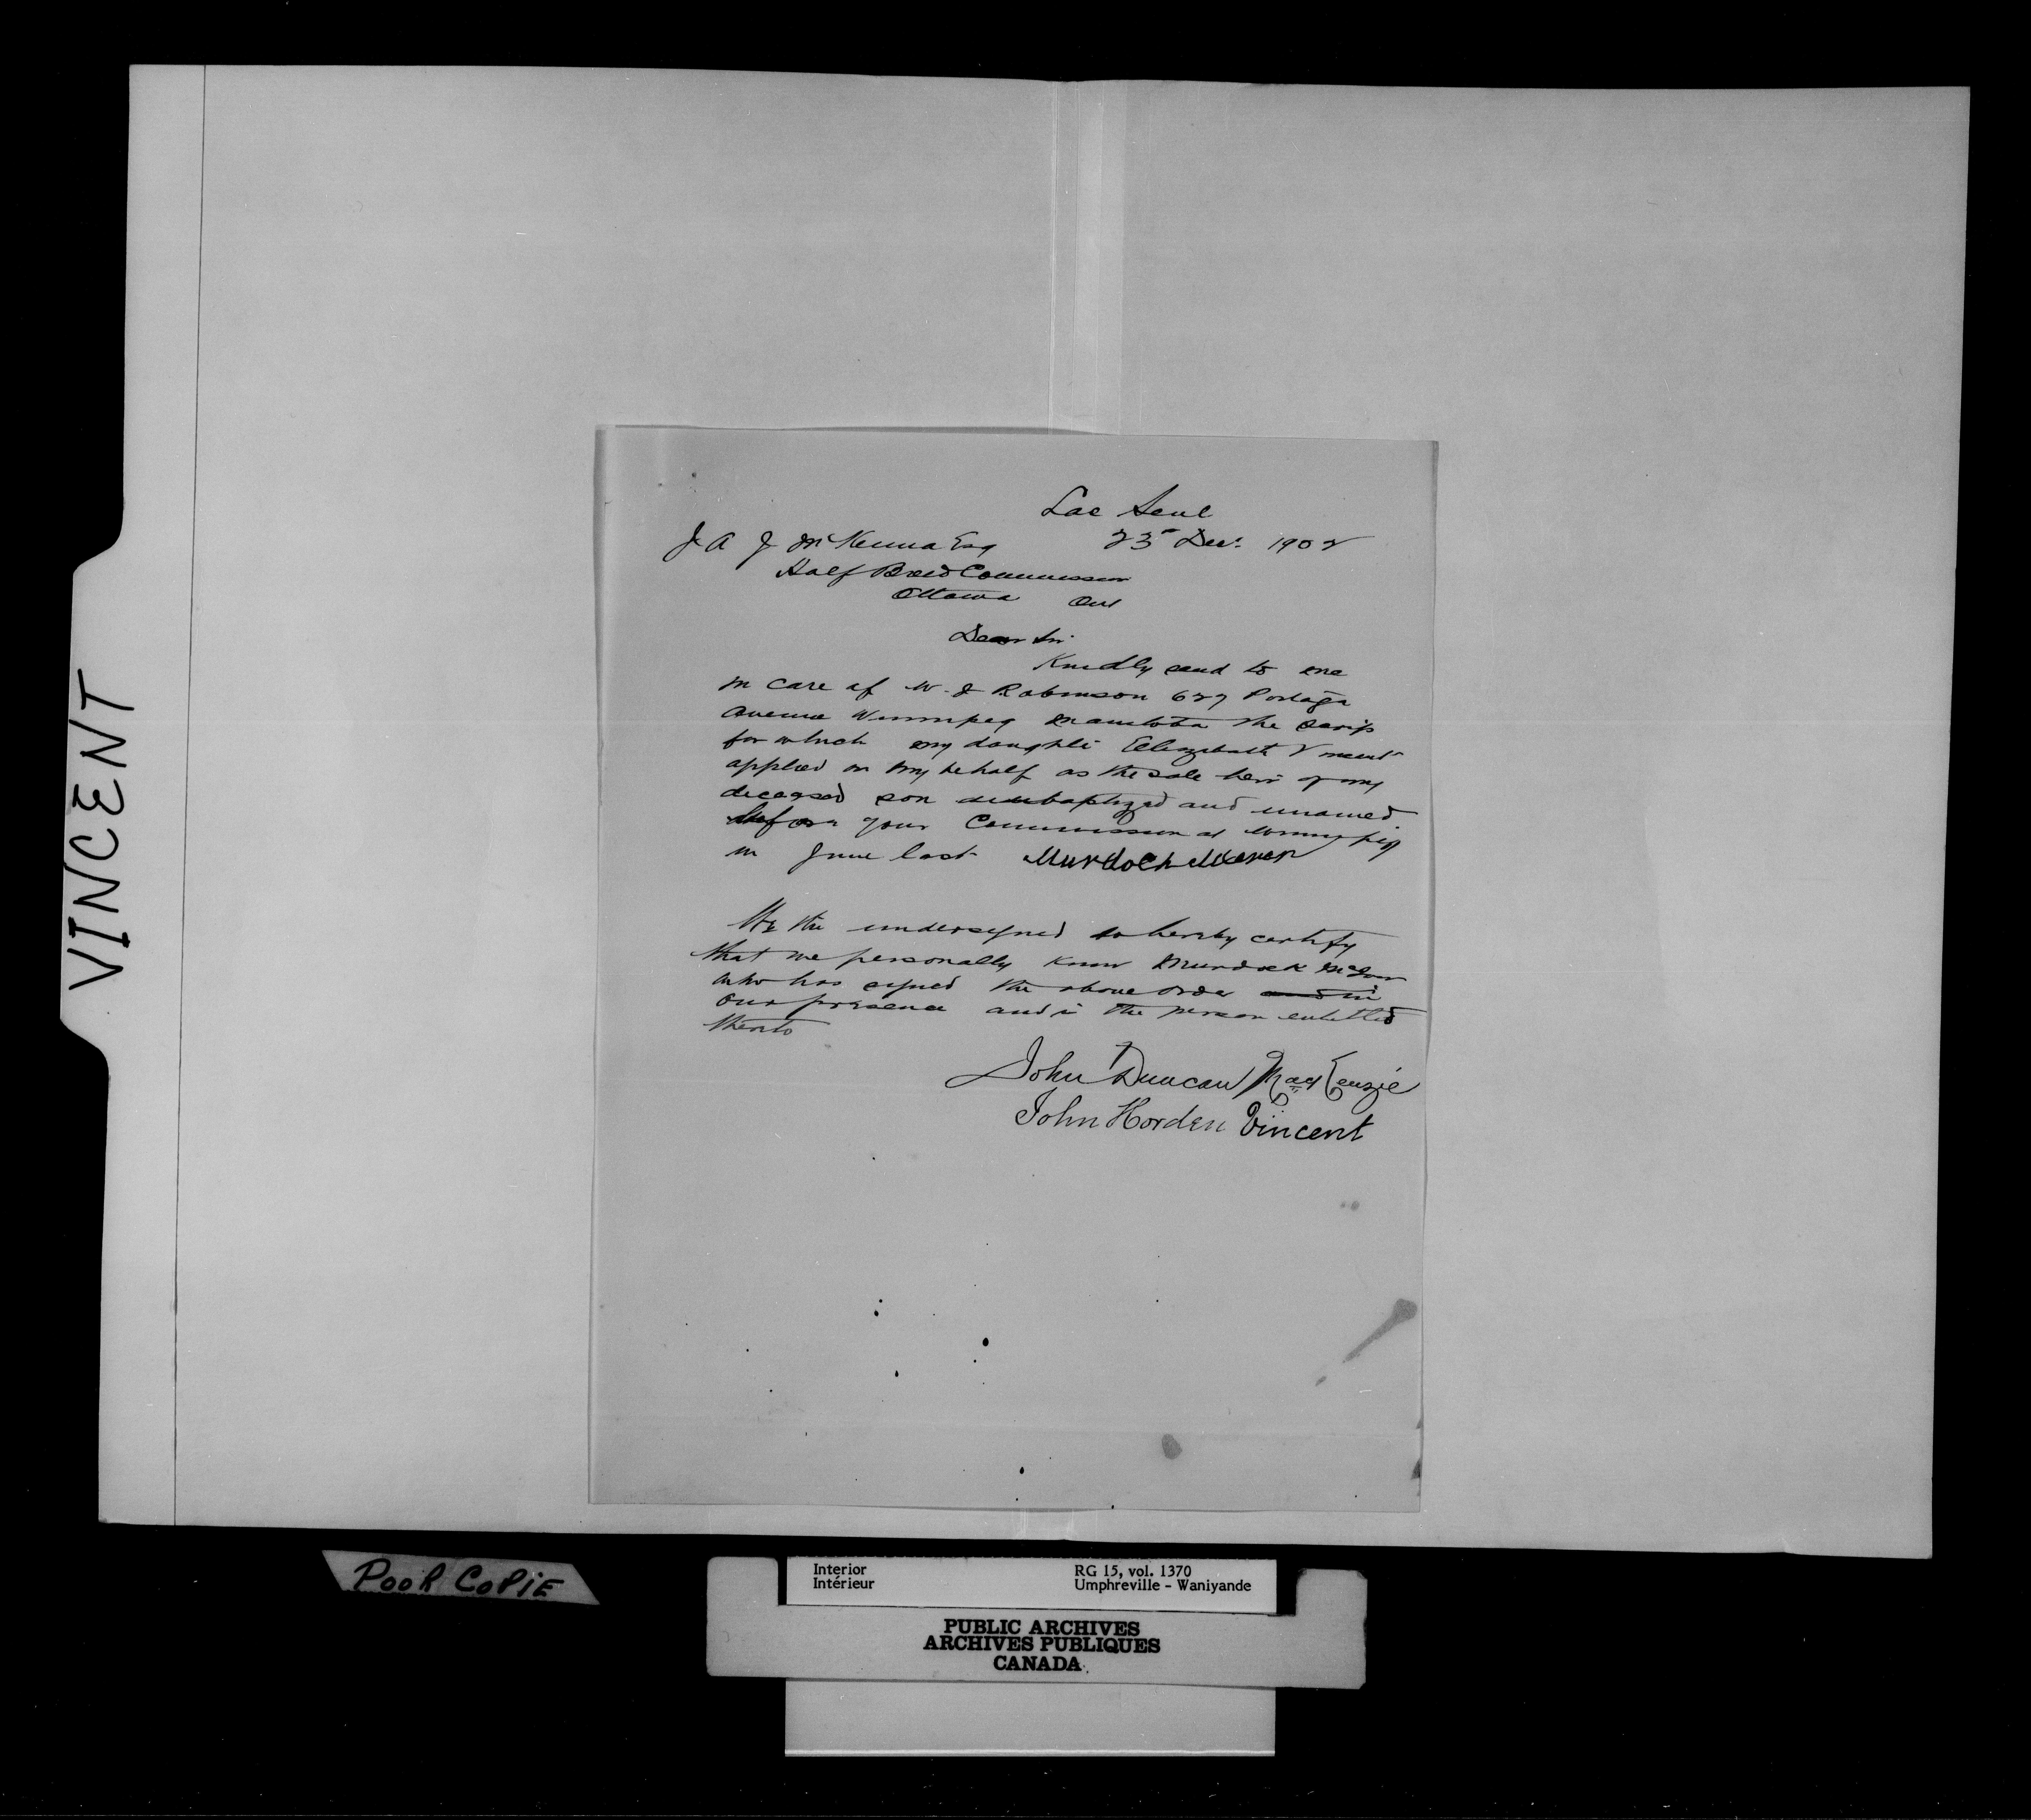 Lac Seul
J A J McKenna Esq 23rd Dec. 1902
Half Breed Commission
Ottawa Ont
Dear Sir
Kindly send to me
in care of W. J Robinson 627 Portage
Avenue Winnipeg Manitoba the scrip
for which my daughter Elizabeth Vincent
applied on my behalf as the sole heir of my
deceased son unbaptized and unamed
before your Commission at Winnipeg
in June last Murdoch
We the undersigned do hereby certify
that we personally know Murdock
who has signed the above order and in
our presence and is the person entitled
thereto
John Duncan MacKenzie
John Horden Vincent
VINCENT
POOR COPIE
Interior RG 15, vol. 1370
Intérieur Umphreville - Waniyande
PUBLIC ARCHIVES
ARCHIVES PUBLIQUES
CANADA